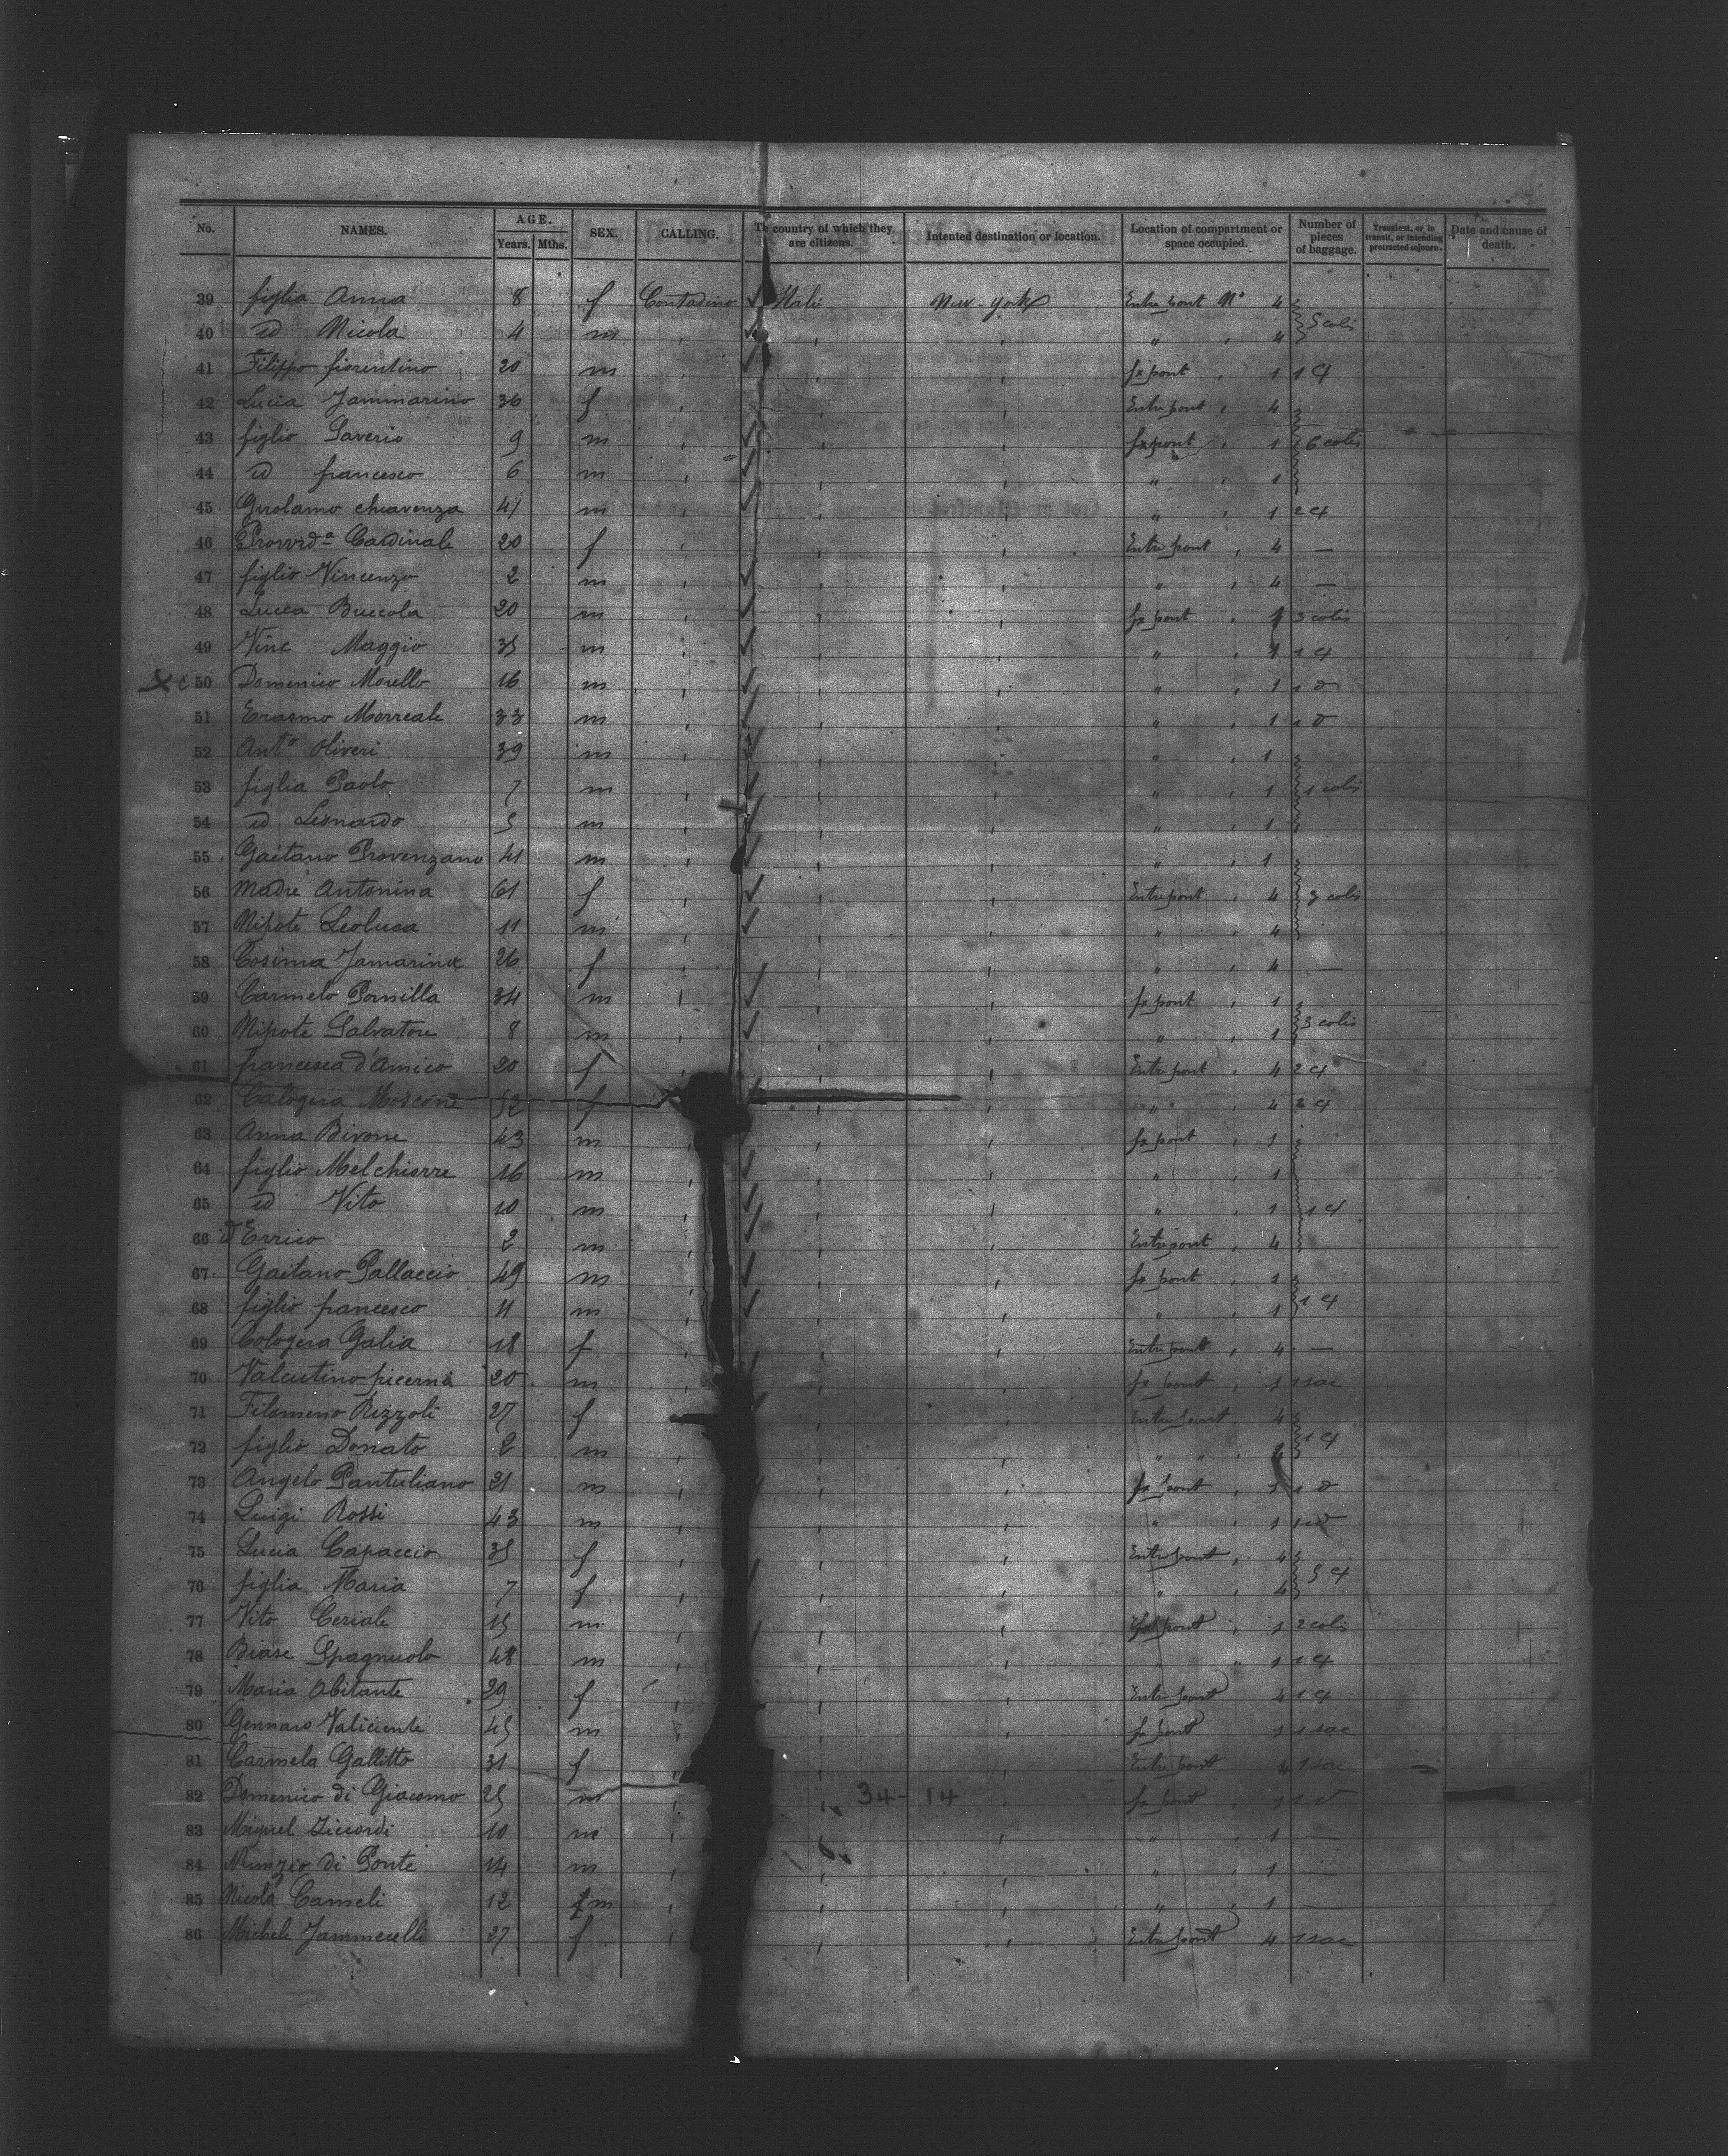 No. NAMES. AGE. Years. Mths. SEX. CALLING. To country of which they are citizens. Intented destination or location. Location of compartment or space occupied. Number of pieces of baggage. Transient, or in transit, or intending protracted sojourn. Date and cause of death.
39 figlia Anna 8 f Contadino Italie New-york Entre pont No 4
40 id Nicola 4 m " 4 5 colis
41 Filippo fiorentino 20 m fx pont 1 1 d
42 Lucia Jammarino 36 f Entre pont 4
43 figlio Saverio 9 m fx pont 1 6 colis
44 id francesco 6 m " 1
45 Girolamo chiavenza 41 m " 1 2 d
46 Provvda Cardinale 20 f Entre pont 4 —
47 figlio Vincenzo 2 m " 4 —
48 Lucca Buccola 20 m fx pont 1 3 colis
49 Vinc Maggio 35 m " 1 1 d
50 Domenico Morello 16 m " 1 1 d
51 Erasmo Morreale 33 m " 1 1 d
52 Anto Oliveri 39 m " 1
53 figlia Paolo 7 m " 1 1 colis
54 id Leonardo 5 m " 1
55 Gaetano Provenzano 41 m " 1
56 Madre Antonina 61 f Entre pont 4 3 colis
57 Nipote Leoluca 11 m " 4
58 Cosima Jamarino 26 f " 4 —
59 Carmelo Pornilla 34 m fx pont 1
60 Nipote Salvatore 8 m " 1 3 colis
61 francesca d'Amico 20 f Entre pont 4 2 d
62 Calogera Moscone 52 f " 4 2 d
63 Anna Birone 43 m fx pont 1
64 figlio Melchiorre 16 m " 1
65 id Vito 10 m " 1 1 d
66 id Errico 2 m Entre pont 4
67 Gaetano Pallaccio 49 m fx pont 1
68 figlio francesco 11 m " 1 1 d
69 Cologera Galia 18 f Entre pont 4 —
70 Valentino picerna 20 m fx pont 1 1 sac
71 Filomeno Rizzoli 27 f Entre pont 4
72 figlio Donato 2 m " 4 1 d
73 Angelo Pantuliano 21 m fx pont 1 1 d
74 Luigi Rossi 43 m " 1 1 id
75 Lucia Capaccio 35 f Entre pont 4
76 figlia Maria 7 f " 4 5 d
77 Vito Ceriale 15 m fx pont 1 2 colis
78 Biase Spagnuolo 48 m " 1 1 d
79 Maria Abitante 29 f Entre pont 4 1 d
80 Gennaro Valiciente 45 m fx pont 1 1 sac
81 Carmela Gallitto 31 f Entre pont 4 1 sac
82 Domenico di Giacomo 25 m 34-14 fx pont 1 1 d
83 Miquel Ziccardi 10 m " 1 —
84 Nunzio di Ponte 14 m " 1 —
85 Nicola Cameli 12 m " 1 —
86 Michele Jammecelli 27 f Entre pont 4 1 sac